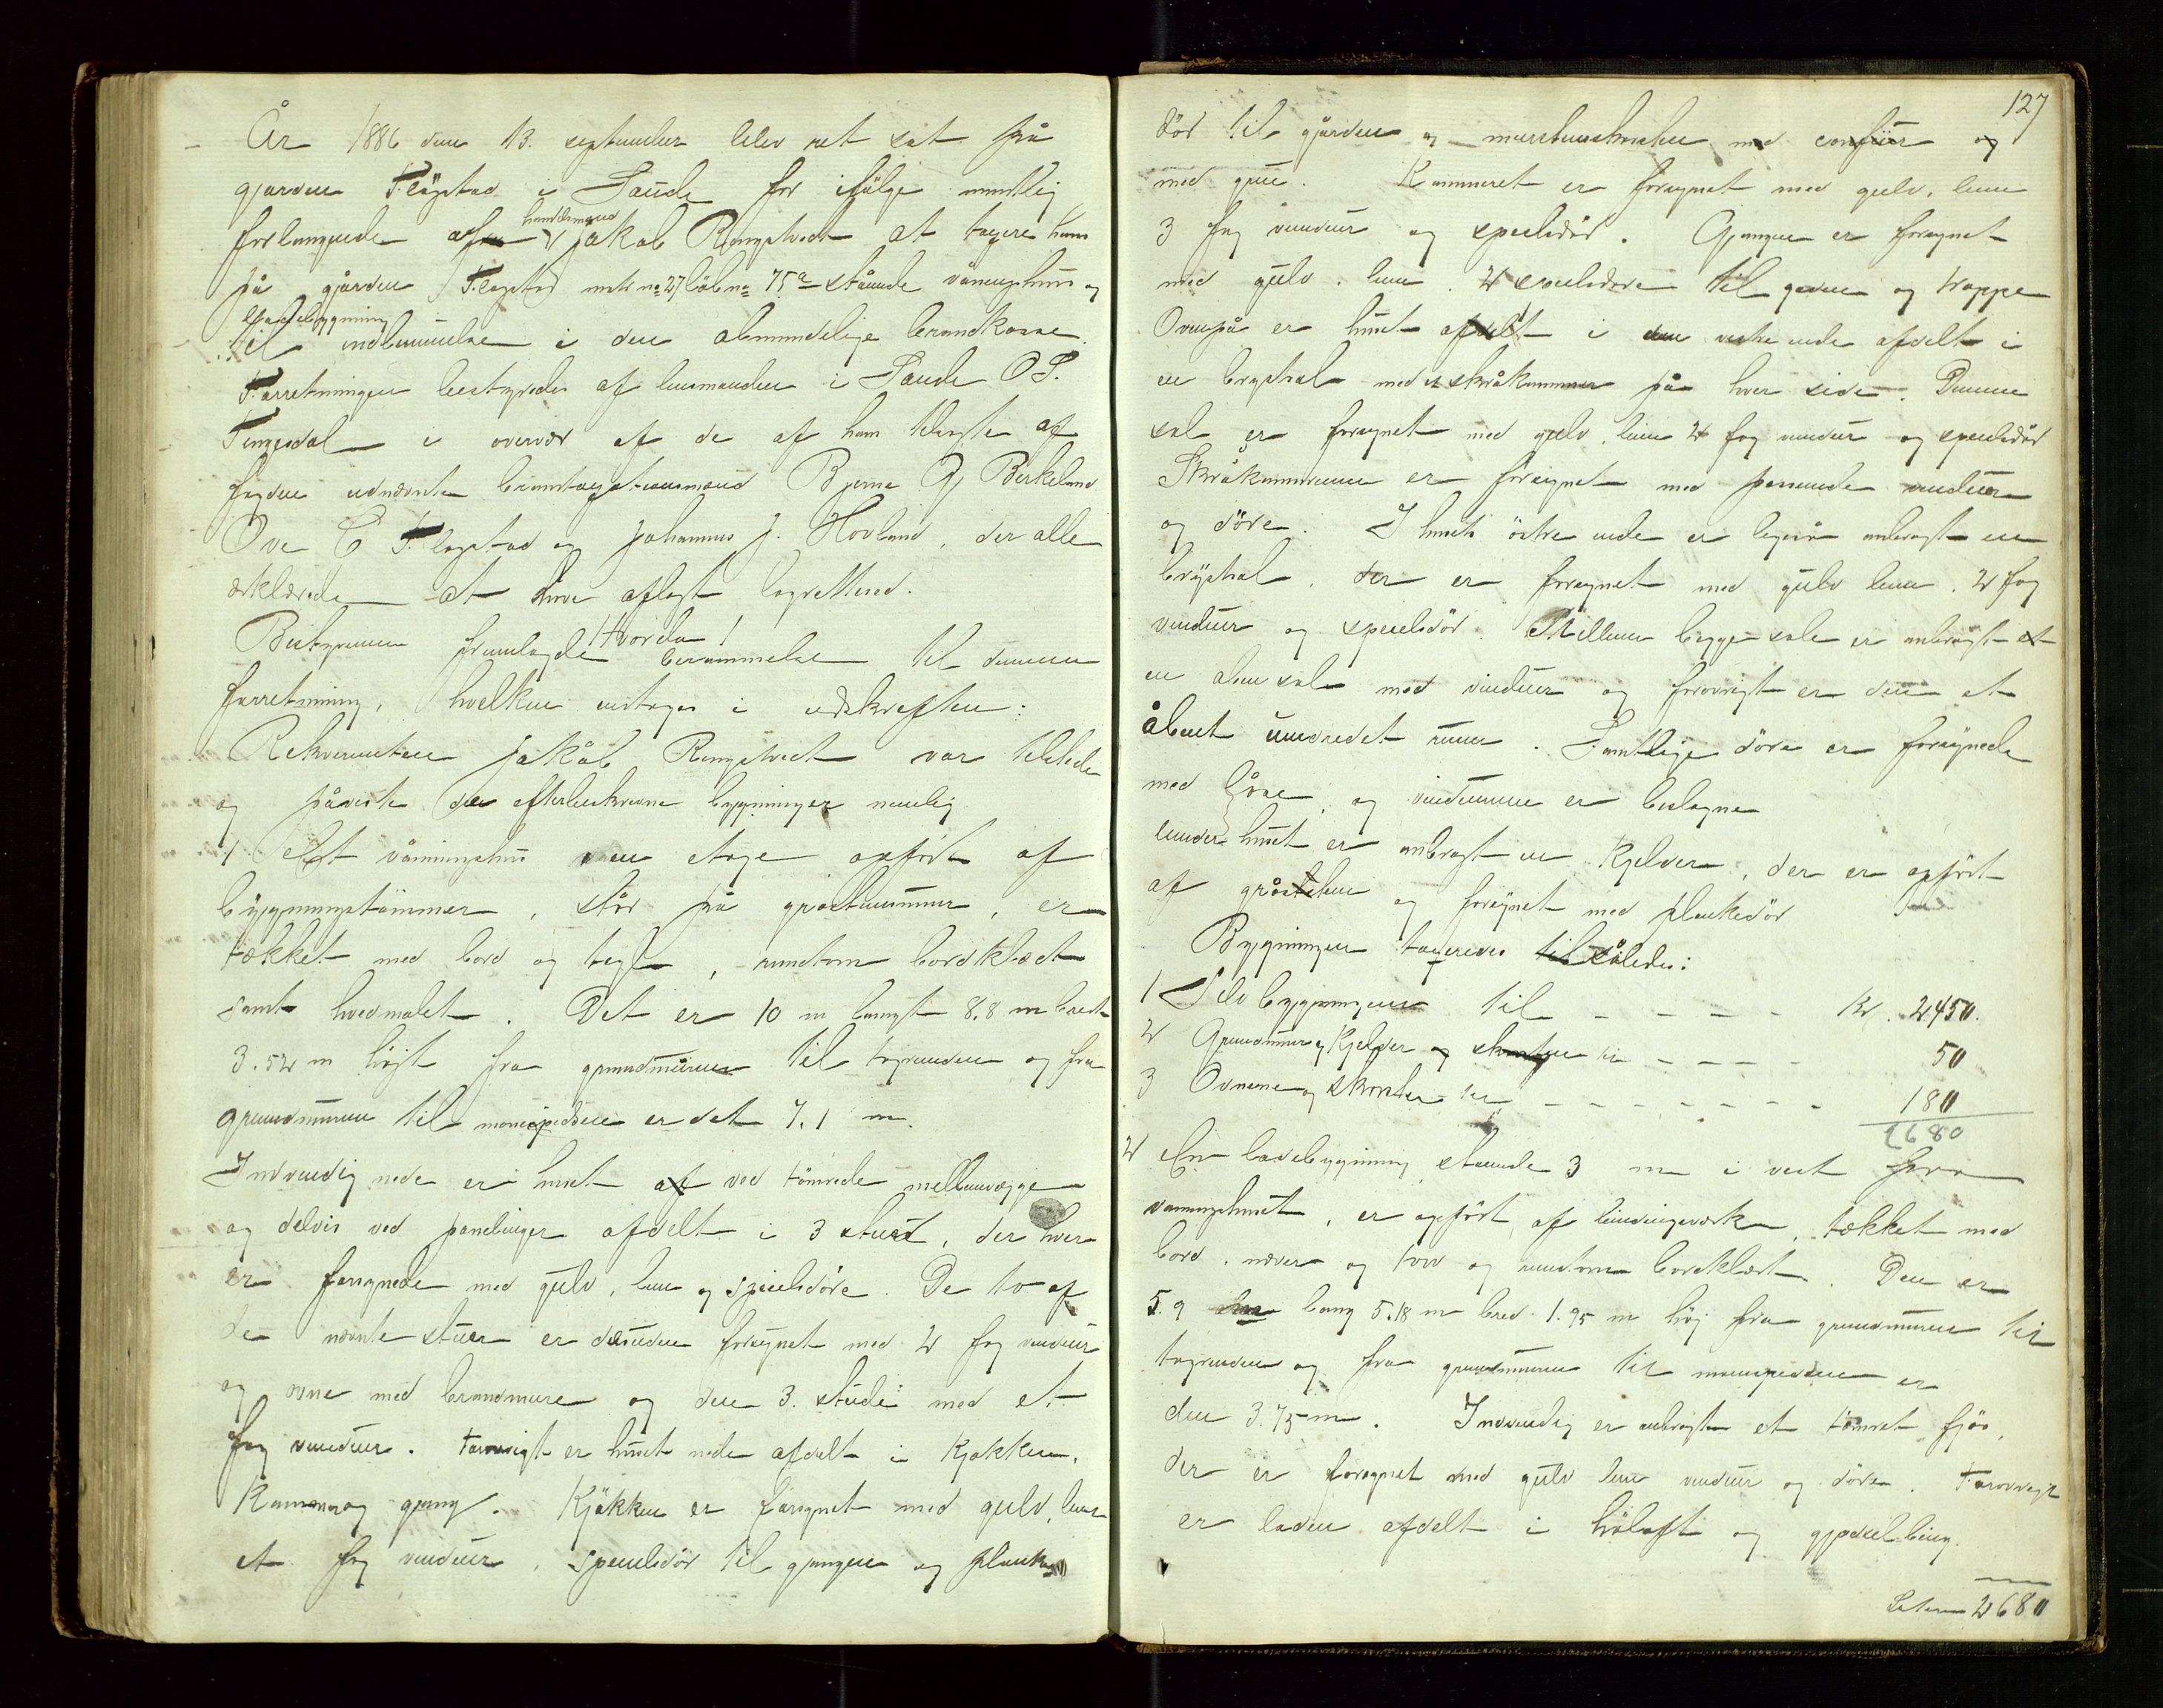 År 1886 den 13. september blev ret sat på
gjarden Fløgstad i Saude for ifølge mundtlig
forlangende af handelsmand Jakob Ringstvedt at taxere hans
på gjården Fløgstad mats no 27 løb no 75 a stående våningshus og
ladebygning
til indlemmelse i den almindelige brandkasse.
Forretningen bestyredes af lensmanden i Saude O S.
Tengesdal i overvær af de af ham tilsagte af
fogden udnævnte brandtaxtionsmænd Bjerne Gj Birkeland
Ove E Fløgstad og Johannes J. Hovland, der alle
erklærede at have aflagt lagretted.
Bestyreren fremlagde berammelse til denne
forretning, hvilken indtages i udskriften:
Rekvirenten Jakob Ringstvedt var tilstede
og påviste de efterbeskrevne bygninger nemlig
1 Et våningshus en etage opført af
bygningstømmer, står på gråstensmur, er
tækket med bord og tegl, rundtom bordklædt
samt hvidmalet. Det er 10 m langt 8.8 m bredt
3.52 m høgt fra grundmuren til tagrenden og fra
grundmuren til mønespidsen er det 7.1 m.
Indvendig nede er huset af ved tømrede mellemvægge
og delvis ved panelinger afdelt i 3 stuer, der hver
er forsynede med gulv, lem og speilsdøre. De to af
de nævnte stuer er desuden forsynet med 2 fag vinduer
og ovne med brandmure og den 3. stue med et
fag vinduer. Forøvrigt er huset nede afdelt i kjøkken,
kammer og gang. Kjøkken er forsynet med gulv, lem
et fag vinduer, speilsdør til gangen og planke
127
dør til gården og murstensskorsten med comfür og
med grue. Kammeret er forsynet med gulv, lem
3 fag vinduer og speilsdør. Gangen er forsynet
med gulv, lem, 2 speilsdøre til gaden og trappe
Ovenpå er huset afdelt i den vestre ende afdelt i
en brystsal med skråkammer på hver side. Denne
sal er forsynet med gulv, lem 2 fag vinduer og speilsdør
Skråkammerene er forsynet med passende vinduer
og døre. I husets østre ende er ligeså anbragt en
brystsal, der er forsynet med gulv lem, 2 fag
vinduer og speilsdør. Mellem begge sale er anbragt et
en ... sal med vinduer og forøvrigt er den et
åbent uindredet rum. Samtlige døre er forsynede
med låse, og vinduerne er beslagne
under huset er anbragt en kjelder, der er opført
af gråsten og forsynet med plankedør
Bygningen taxeredes til således:
1 Selv bygningen til - - - - - Kr. 2450.
2 Grundmur og Kjelder og skorsten til - - - - 50
3 Ovnene og skorsten til - - - - - - - - 180
2680
2 En ladebygning stående 3 m i vest fra
vaaningshuset, er opført af bindingsværk, tækket med
bord, næver og torv og rundtom bordklædt. Den er
5.9 m lang 5.18 m bred 1.95 m høj fra grundmuren til
tagrenden og fra grundmuren til mønespidsen er
den 3.75 m. Indvendig er anbragt et tømret fjøs,
der er forsynet med gulv lem vinduer og døre. Forøvrigt
er laden afdelt i høloft og gjødselbing.
Lateris 2680